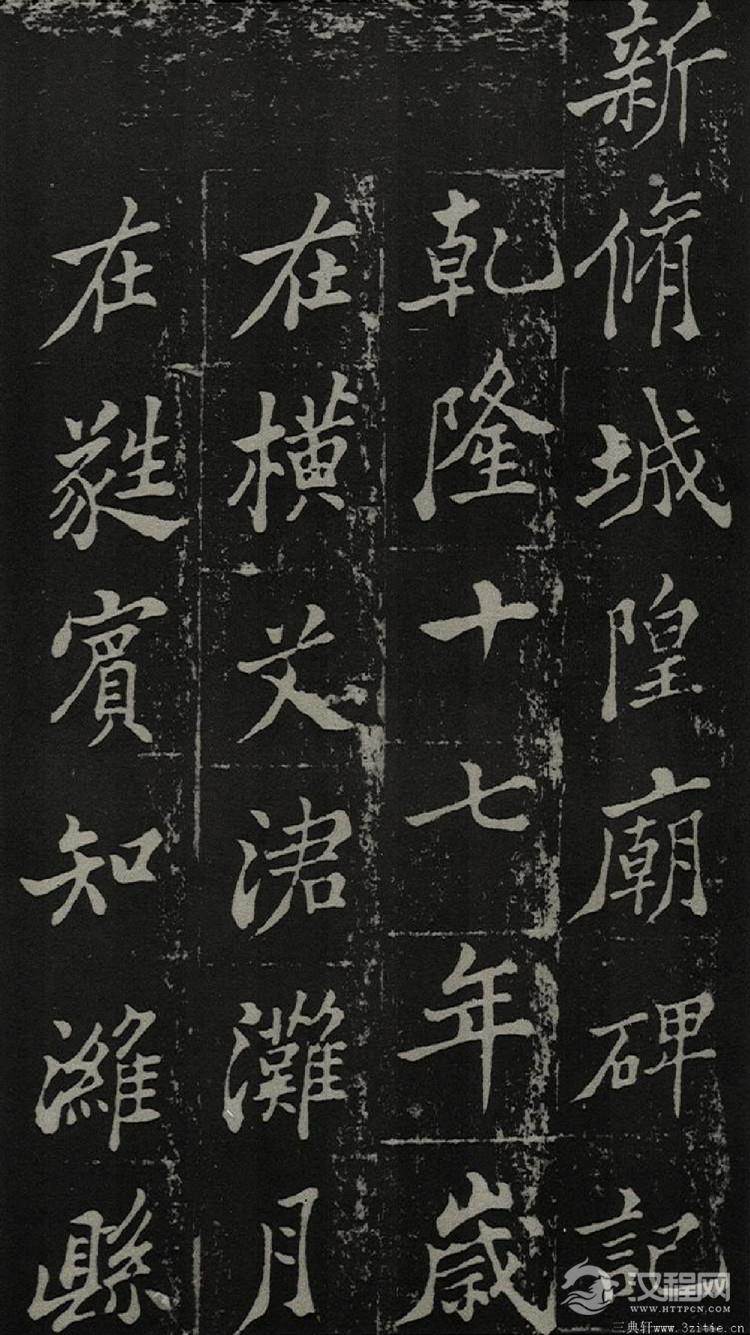 新脩城隍廟碑記
乾隆十七年歲
在橫艾涒灘月
在蕤賓知濰縣
汉程网
WWW.HTTPCN.COM
三典轩www.3zitie.cn